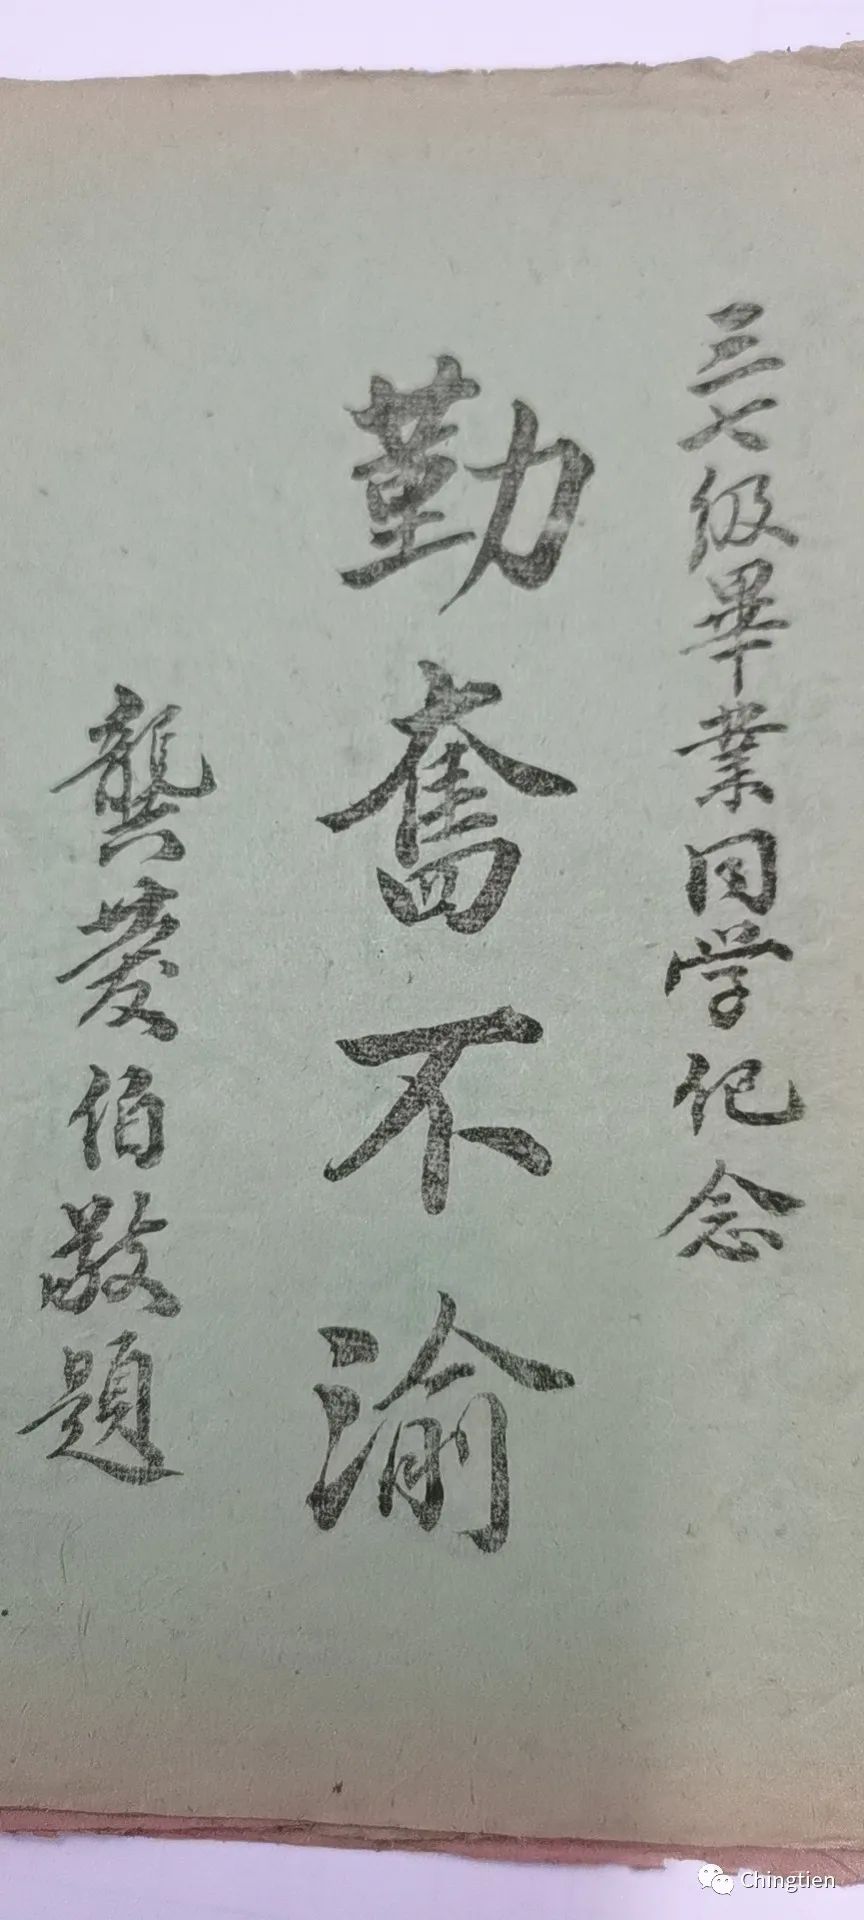 三七级畢業同学纪念
勤奮不渝
龔伯敬題
Chingtien